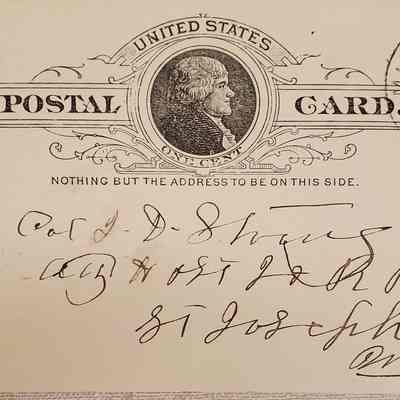 UNITED STATES
POSTAL CARD.
ONE CENT
NOTHING BUT THE ADDRESS TO BE ON THIS SIDE.
Col J. D. Strong
St Joseph